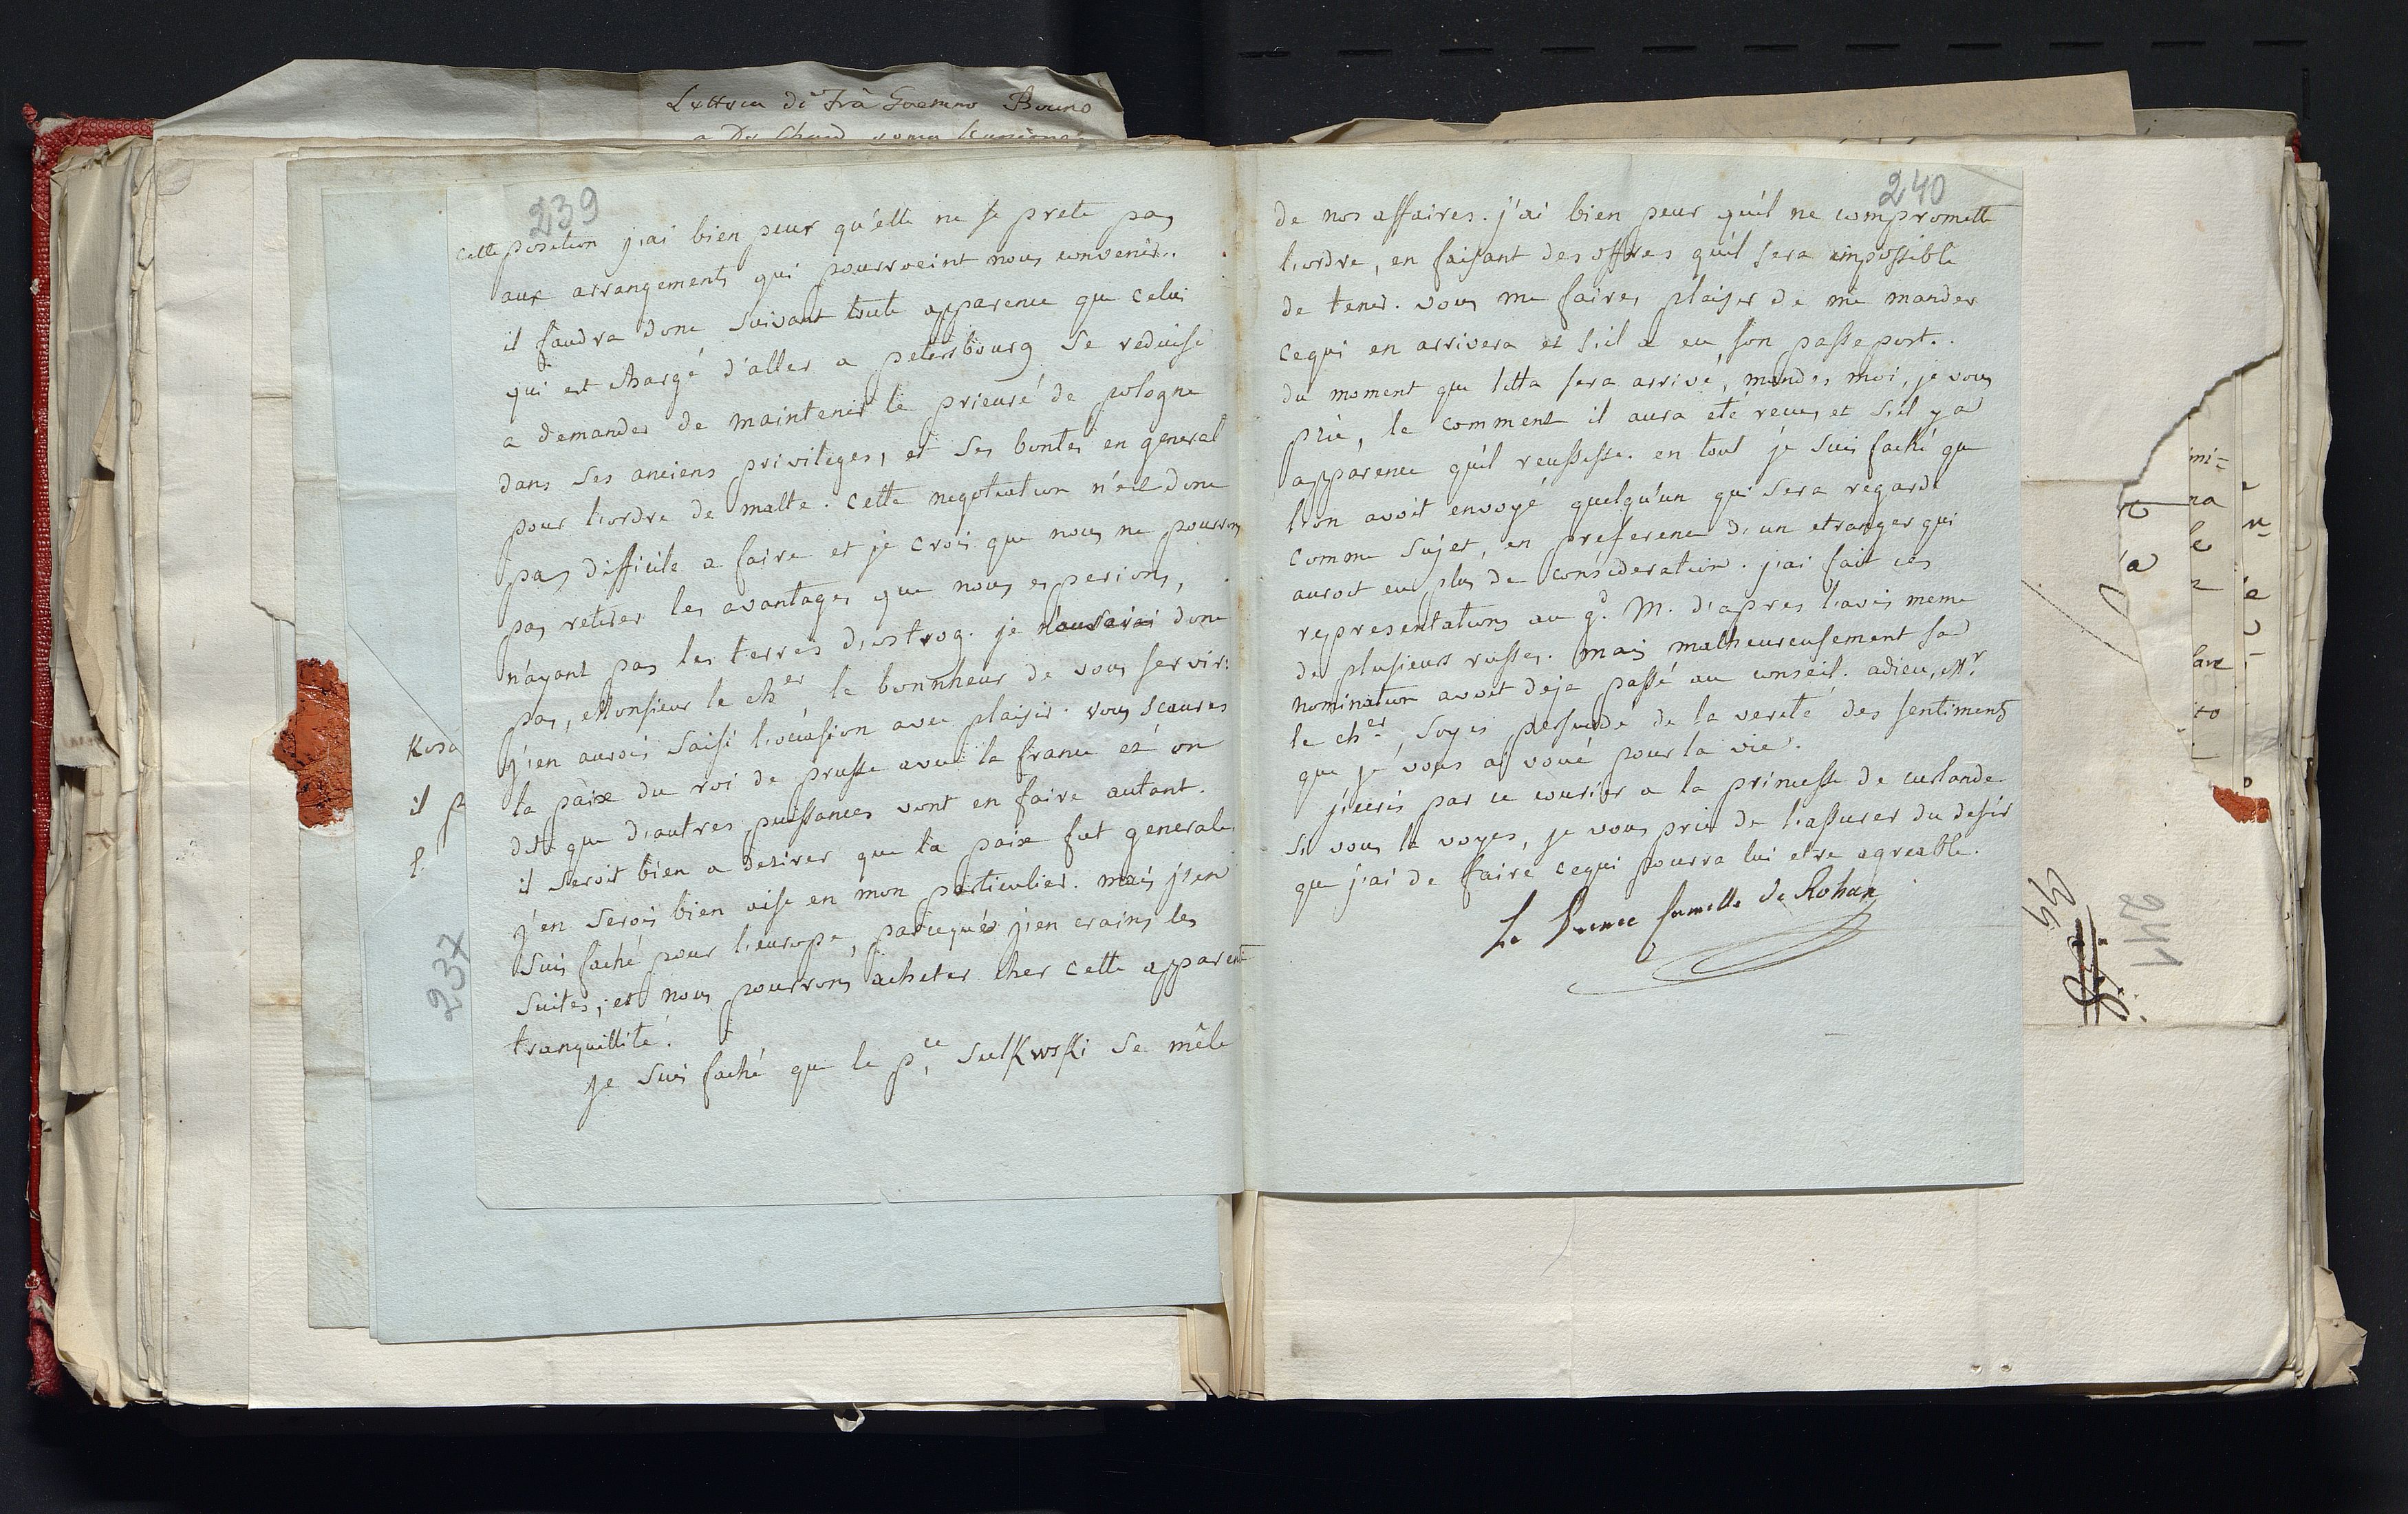 Lettera di Frà
239
cette position j'ai bien peur qu'elle ne se prete pas
aux arrangements qui pourroeint nous convenir.
il faudra donc suivant toute apparence que celui
qui est chargé d'aller a petersbourg se reduise
a demander de maintenir le prieuré de pologne
dans ses anciens privileges, et ses bontés en general
pour l'ordre de malte. cette negotiation n'est donc
pas difficile a faire et je crois que nous ne pourrons
pas retirer les avantages que nous esperions,
n'ayant pas les terres d'ostrog. je n'aurai donc
pas, Monsieur le cher, le bonnheur de vous servir.
j'en aurois saisi l'occasion avec plaisir. vous scaures
la paix du roi de prusse avec la france et on
dit que d'autres puissances vont en faire autant.
il seroit bien a desirer que la paix fut generale
j'en serois bien aise en mon particulier. mais j'en
suis faché pour l'europe, parceque j'en crains les
suites, et nous pourrons acheter cher cette apparente
tranquillité.
je suis faché que le pce, sulKwsKi se mêle
240
de nos affaires. j'ai bien peur qu'il ne compromett
l'ordre, en faisant des offres qu'il sera impossible
de tenir. vous me faires plaiser de me mander
cequi en arrivera et s'il a eu son passeport.
du moment que litta sera arrivé, mandes moi, je vous
prie, le comment il aura eté recu, et s'il y a
apparence qu'il reussisse. en tout je suis faché que
l'on avoit envoyé quelqu'un qui sera regardé
comme sujet, en preference d'un etranger qui
auroit eu plus de consideration. j'ai fait ces
representations au gd. M. d'apres l'avis meme
de plusieurs russes. mais malheureusement sa
nomination avoit deja passé au conseil. adieu, Mr.
le cher, soyes persuade de la verité des sentiments
que je vous ai voué pour la vie.
j'ecris par ce courier a la princesse de curlande
si vous la voyes, je vous prie de l'assurer du desir
que j'ai de faire cequi pourra lui etre agreable.
Le Prince Camille de Rohan
il p
237
241